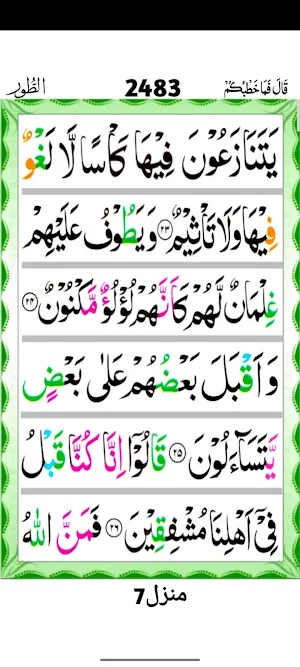 الطُّوْر 2483 قَالَ فَمَا خَطْبُكُمْ
يَتَنَازَعُوْنَ فِيْهَا كَاْسًا لَّا لَغْوٌ
فِيْهَا وَلَا تَاْثِيْمٌ ﴿۲۳﴾ وَيَطُوْفُ عَلَيْهِمْ
غِلْمَانٌ لَّهُمْ كَاَنَّهُمْ لُؤْلُؤٌ مَّكْنُوْنٌ ﴿۲۴﴾
وَاَقْبَلَ بَعْضُهُمْ عَلٰى بَعْضٍ
يَّتَسَآءَلُوْنَ ﴿۲۵﴾ قَالُوْٓا اِنَّا كُنَّا قَبْلُ
فِيْٓ اَهْلِنَا مُشْفِقِيْنَ ﴿۲۶﴾ فَمَنَّ اللّٰهُ
منزل7